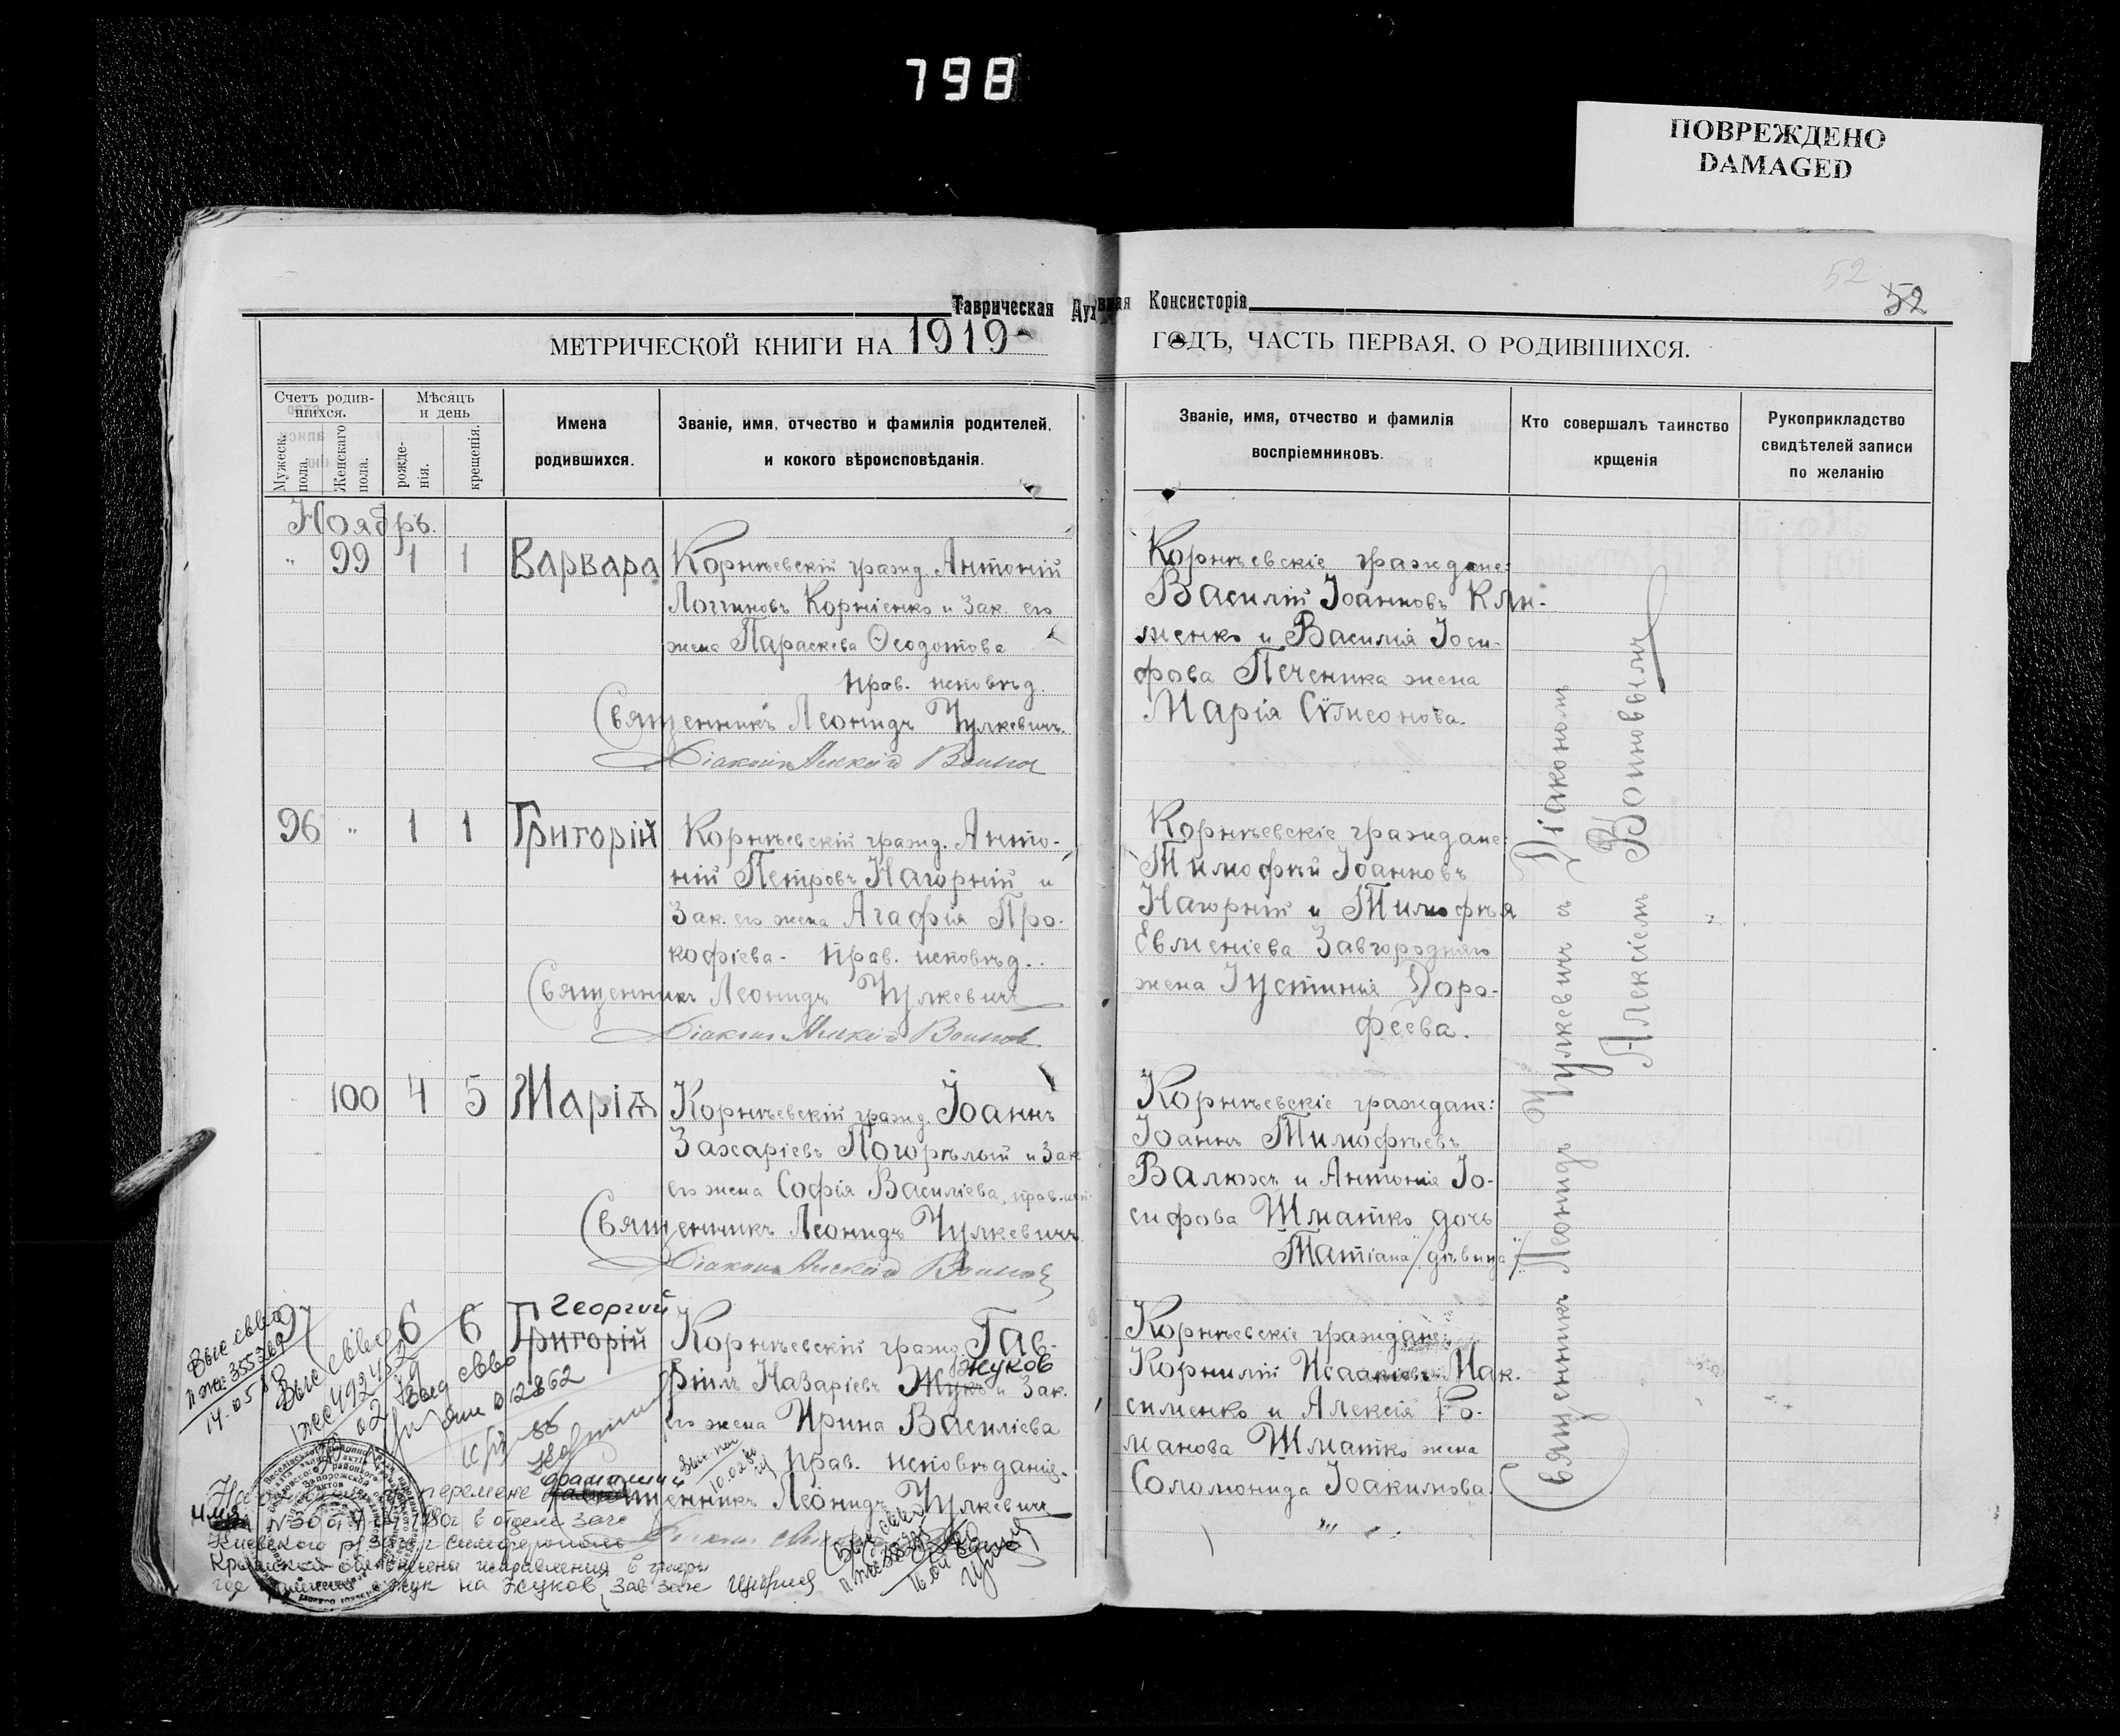 798
ПОВРЕЖДЕНО
DAMAGED
52
52
Таврическая Духовная Консисторія
МЕТРИЧЕСКОЙ КНИГИ НА 1919 ГОДЪ, ЧАСТЬ ПЕРВАЯ, О РОДИВШИХСЯ.
Счетъ родив-
шихся.
Мужеск.
пола.
Женскаго
пола.
Мѣсяцъ
и день
рожде-
нія.
крещенія.
Имена
родившихся.
Званіе, имя, отчество и фамилія родителей,
и кокого вѣроисповѣданія.
Званіе, имя, отчество и фамилія
воспріемниковъ.
Кто совершалъ таинство
крщенія
Рукоприкладство
свидѣтелей записи
по желанію
Ноябрь.
" 99 1 1 Варвара
Корнѣевскій гражд. Антоній
Логгиновъ Корніенко и зак. его
жена Параскева Ѳеодотова
прав. исповѣд.
Священникъ Леонидъ Чулкевичъ.
Діаконъ Алексій Воинов
Корнѣевскіе граждане:
Василій Іоанновъ Кли-
менко и Василія Іоси-
фова Печеника жена
Марія Сѵмеонова.
96 " 1 1 Григорій
Корнѣевскій гражд. Анто-
ній Петровъ Нагорній и
зак. его жена Агафія Про-
кофіева - прав. исповѣд.
Священникъ Леонидъ Чулкевичъ
Діаконъ Алексій Воинов
Корнѣевскіе граждане:
Тимофѣй Іоанновъ
Нагорній и Тимофѣя
Евменіева Завгородняго
жена Іустинія Доро-
феева.
100 4 5 Марія
Корнѣевскій гражд. Іоаннъ
Захаріевъ Погорѣлый и зак
его жена Софія Василіева, прав. исп.
Священникъ Леонидъ Чулкевичъ
Діаконъ Алексій Воинов
Корнѣевскіе граждане:
Іоаннъ Тимофѣевъ
Валюхъ и Антонія Іо-
сифова Шматко дочь
Татіана "/дѣвица"/
97 6 6 Григорій
Георгий
Корнѣевскій гражд. Гав-
ріилъ Назаріевъ Жукъ и зак.
Жуков
его жена Ирина Василіева
прав. исповѣданія.
Священникъ Леонидъ Чулкевичъ
Корнѣевскіе граждане:
Корнилій Исааковъ Мак-
сименко и Алексія Ро-
манова Шматко жена
Соломонида Іоакимова.
Священникъ Леонидъ Чулкевичъ съ Діакономъ
Алексіемъ Воиновымъ
14-05
10.02
перемене фамилии
имя
в отделе загс
Киевского р/загс г Симферополь
исправления в
Жук на Жуков, зав загс